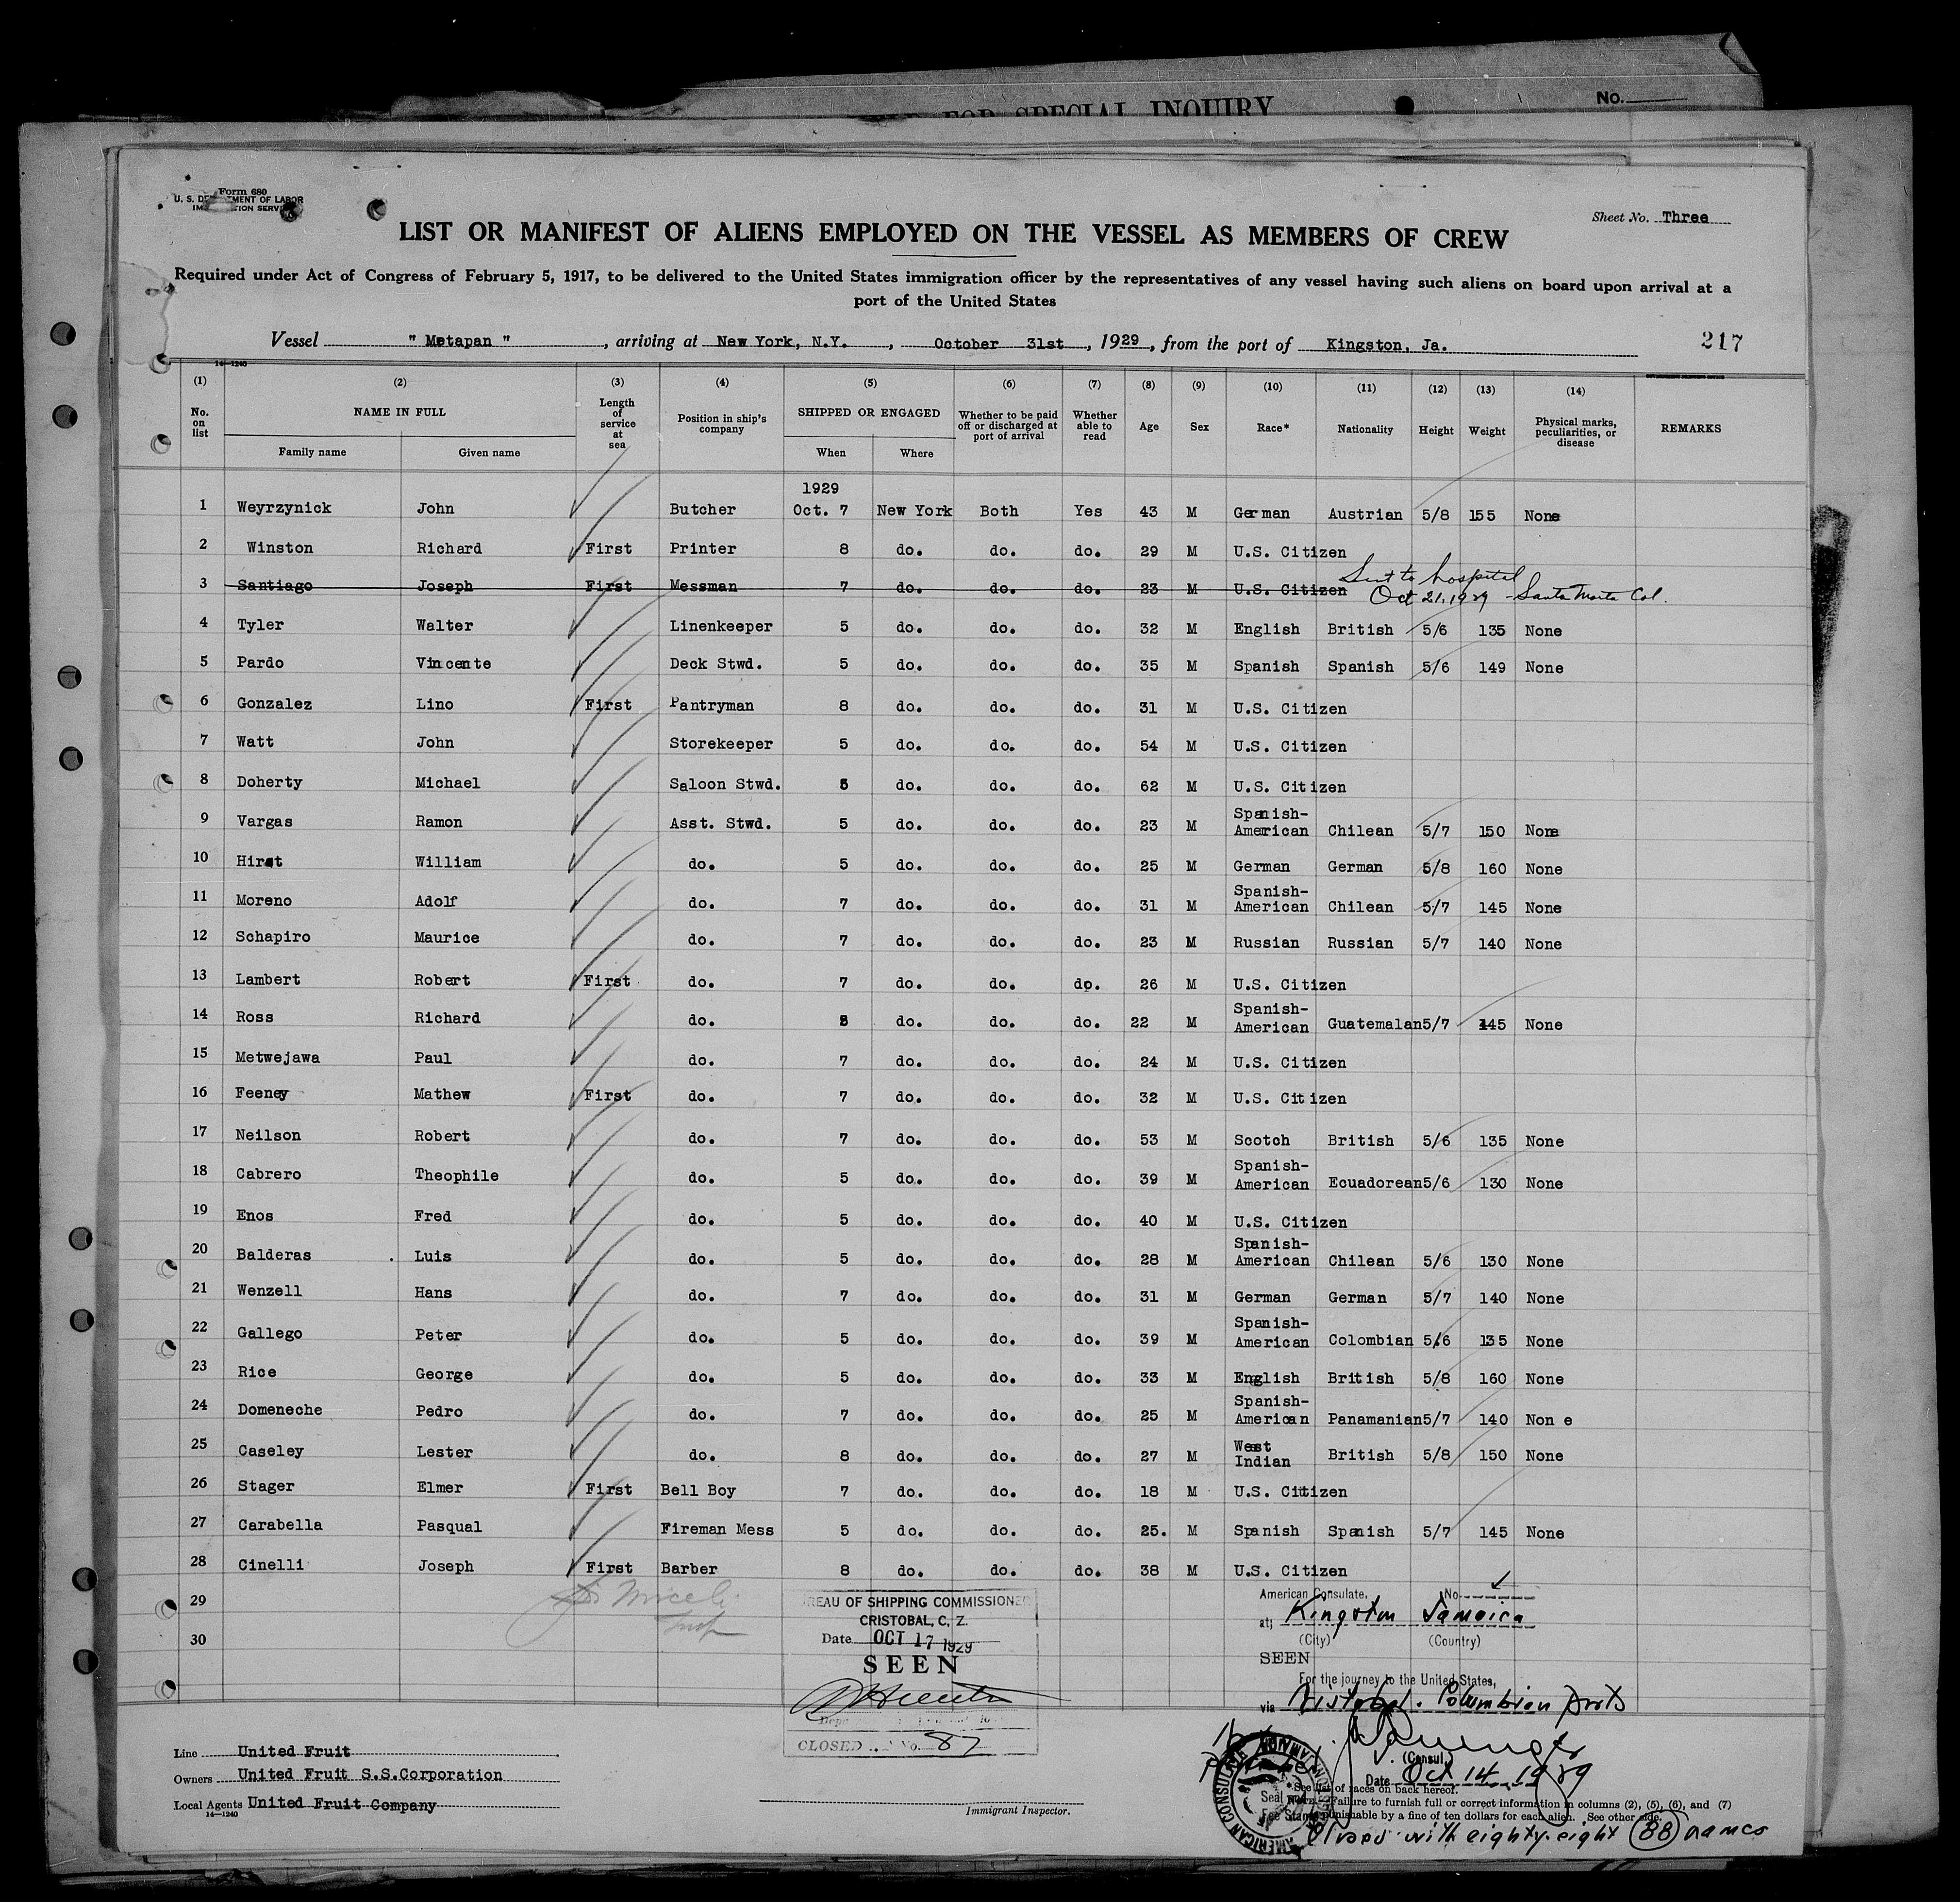 FOR SPECIAL INQUIRY
No.
Form 680
U. S. DEPARTMENT OF LABOR
IMMIGRATION SERVICE
Sheet No. Three
LIST OR MANIFEST OF ALIENS EMPLOYED ON THE VESSEL AS MEMBERS OF CREW
Required under Act of Congress of February 5, 1917, to be delivered to the United States immigration officer by the representatives of any vessel having such aliens on board upon arrival at a
port of the United States
Vessel " Metapan ", arriving at New York, N.Y., October 31st, 1929, from the port of Kingston, Ja.
217
14—1240
(1) (2) (3) (4) (5) (6) (7) (8) (9) (10) (11) (12) (13) (14)
No. on list
NAME IN FULL
Family name Given name
Length of service at sea
Position in ship's company
SHIPPED OR ENGAGED
When Where
Whether to be paid off or discharged at port of arrival
Whether able to read
Age
Sex
Race*
Nationality
Height
Weight
Physical marks, peculiarities, or disease
REMARKS
1929
1 Weyrzynick John Butcher Oct. 7 New York Both Yes 43 M German Austrian 5/8 155 None
2 Winston Richard First Printer 8 do. do. do. 29 M U.S. Citizen
3 Santiago Joseph First Messman 7 do. do. do. 23 M U.S. Citizen Sent to hospital
Oct 21, 1929 - Santa Marta Col.
4 Tyler Walter Linenkeeper 5 do. do. do. 32 M English British 5/6 135 None
5 Pardo Vincente Deck Stwd. 5 do. do. do. 35 M Spanish Spanish 5/6 149 None
6 Gonzalez Lino First Pantryman 8 do. do. do. 31 M U.S. Citizen
7 Watt John Storekeeper 5 do. do. do. 54 M U.S. Citizen
8 Doherty Michael Saloon Stwd. 5 do. do. do. 62 M U.S. Citizen
9 Vargas Ramon Asst. Stwd. 5 do. do. do. 23 M Spanish-American Chilean 5/7 150 None
10 Hirst William do. 5 do. do. do. 25 M German German 5/8 160 None
11 Moreno Adolf do. 7 do. do. do. 31 M Spanish-American Chilean 5/7 145 None
12 Schapiro Maurice do. 7 do. do. do. 23 M Russian Russian 5/7 140 None
13 Lambert Robert First do. 7 do. do. do. 26 M U.S. Citizen
14 Ross Richard do. 5 do. do. do. 22 M Spanish-American Guatemalan 5/7 145 None
15 Metwejawa Paul do. 7 do. do. do. 24 M U.S. Citizen
16 Feeney Mathew First do. 7 do. do. do. 32 M U.S. Citizen
17 Neilson Robert do. 7 do. do. do. 53 M Scotch British 5/6 135 None
18 Cabrero Theophile do. 5 do. do. do. 39 M Spanish-American Ecuadorean 5/6 130 None
19 Enos Fred do. 5 do. do. do. 40 M U.S. Citizen
20 Balderas Luis do. 5 do. do. do. 28 M Spanish-American Chilean 5/6 130 None
21 Wenzell Hans do. 7 do. do. do. 31 M German German 5/7 140 None
22 Gallego Peter do. 5 do. do. do. 39 M Spanish-American Colombian 5/6 135 None
23 Rice George do. 5 do. do. do. 33 M English British 5/8 160 None
24 Domeneche Pedro do. 7 do. do. do. 25 M Spanish-American Panamanian 5/7 140 Non e
25 Caseley Lester do. 8 do. do. do. 27 M West Indian British 5/8 150 None
26 Stager Elmer First Bell Boy 7 do. do. do. 18 M U.S. Citizen
27 Carabella Pasqual Fireman Mess 5 do. do. do. 25. M Spanish Spanish 5/7 145 None
28 Cinelli Joseph First Barber 8 do. do. do. 38 M U.S. Citizen
29
30
BUREAU OF SHIPPING COMMISSIONER
CRISTOBAL, C. Z.
Date OCT 17 1929
SEEN
CLOSED No. 87
American Consulate, No.
at; Kingston Jamaica
(City) (Country)
SEEN
For the journey to the United States,
via Cristobal. Columbian Ports
(Consul)
Date Oct 14 1929
Seal and
Fee Stamp
AMERICAN CONSULATE
Line United Fruit
Owners United Fruit S.S.Corporation
Local Agents United Fruit Company
14—1240
Immigrant Inspector.
*See list of races on back hereof.
Note.—Failure to furnish full or correct information in columns (2), (5), (6), and (7)
punishable by a fine of ten dollars for each alien. See other side.
Closed with eighty-eight (88) names